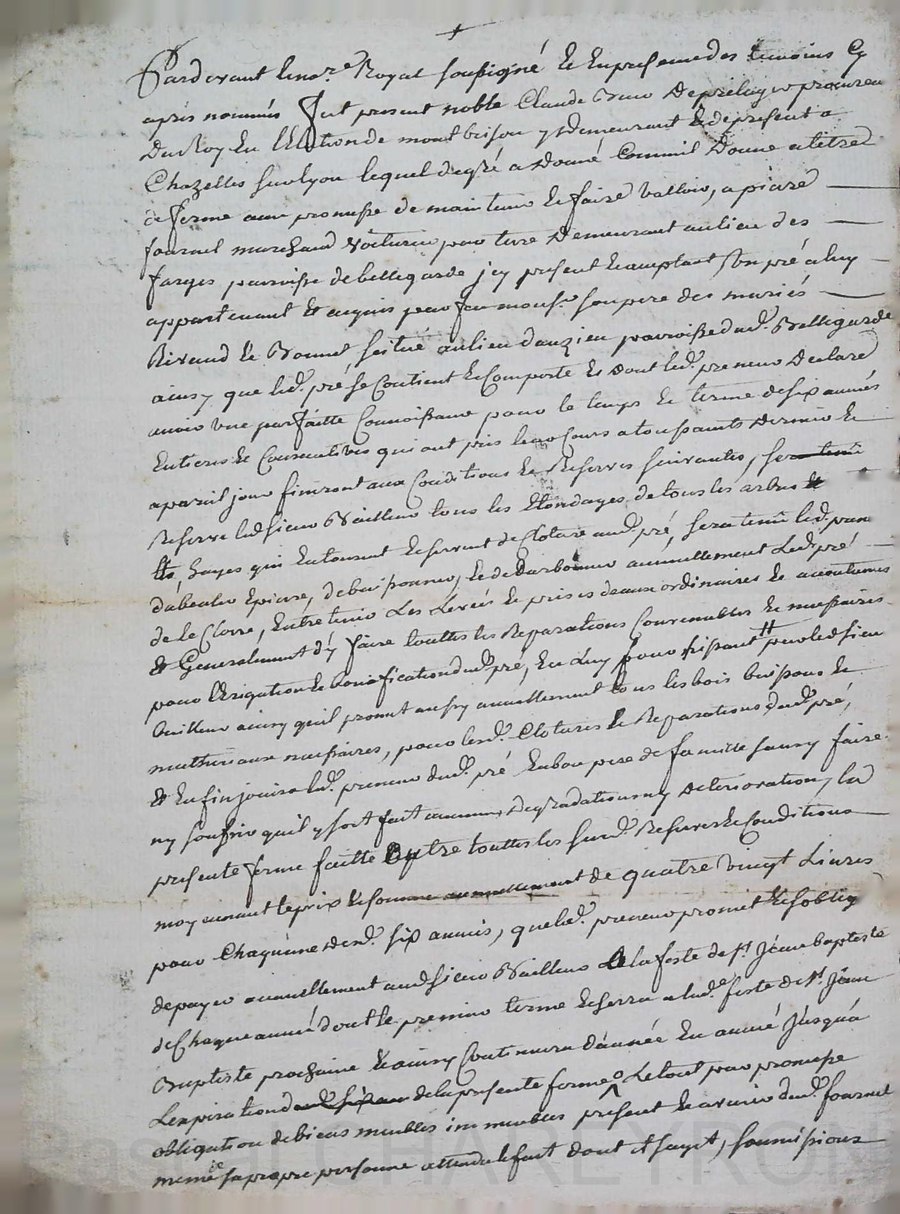 +
Pardevant le no.re Royal soussigné Et En presence des temoins Cy
après nommés fut present noble Claude
Du Roy En l'Election de montbrison y Demeurant Et de present a
Chazelles sur lyon lequel de gré a Donné Comme il Donne a titre
de ferme avec promesse de maintenir Et faire Valloir, a piarre
fournel marchand Voiturier pour terre Demeurant au lieu des
farges paroisse de bellegarde jcy present Et acceptant son pré a luy
appartenant Et acquis par feu mons.r son pere des mariés
Rivaud Et Bonnet scitué au lieu d'auzieu parroisse dud. Bellegarde
ainsy que led. pré se Contient Et Comporte Et Dont led. preneur Declare
avoir Une parfaitte Connoissance pour le temps Et terme de six années
Entieres Et Consecutives qui ont pris leur Cours a toussaints Dernier Et
a pareil jour finiront aux Conditions Et Reserves suivantes,
Reserve led. sieur Bailleur tous les Elondages de tous les arbres
hayes qui Entourent Et servent de Cloture aud. pré, sera tenu led. preneur
d'abealer Epierre, debuissonner, Et de Darbonner annuellement Led. pré
de le Clorre, Entretenir Les Levées Et prises deaux ordinaires Et accoutumés
Et Generalement d'y faire touttes les Reparations Convenables Et necessaires
pour l'Irigation Et bonnification dud. pré, En luy fournissant par led. sieur
bailleur ainsy qu'il promet aussy annuellement tous les bois buissons Et
matheriaux necessaires, pour lesd. Clotures Et Reparations dud. pré,
Et Enfin jouira led. preneur dud. pré En bon pere de famille sans y faire
ny souffrir qu'il y soit fait aucunes degradations ny deteriorations, la
presente ferme faitte Outre touttes les susd. Reserves Et Conditions
moyennant le prix Et somme annuellement de quatre Vingt Livres
pour Chaqu'une desd. six années, que led. preneur promet Et s'oblige
de payer annuellement aud. sieur Bailleur a la feste de s.t Jean Baptiste
de Chaque année dont le premier terme Echerra a lad. feste de s.t Jean
Baptiste prochaine Et ainsy Continuera d'année En année Jusqu'a
L'expiration de la presente ferme Le tout par promesse
obligation de biens meubles immeubles present Et avenir dud. fournel
meme de sa propre personne attendu le fait dont il s'agit, soumissions
Pascal CHAREYRON